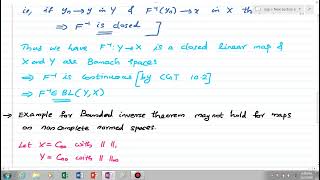 ie, if yn → y in Y & F⁻¹(yn) → x in X th
⇒ F⁻¹ is closed ]
Thus we have F⁻¹: Y → X is a closed linear map &
X and Y are Banach spaces
⇒ F⁻¹ is continuous [by CGT 10.2]
⇒ F⁻¹ ∈ BL(Y, X)
→ Example for Bounded inverse theorem may not hold for maps
on noncomplete normed spaces.
Let X = C₀₀ with || ||₁
Y = C₀₀ with || ||∞